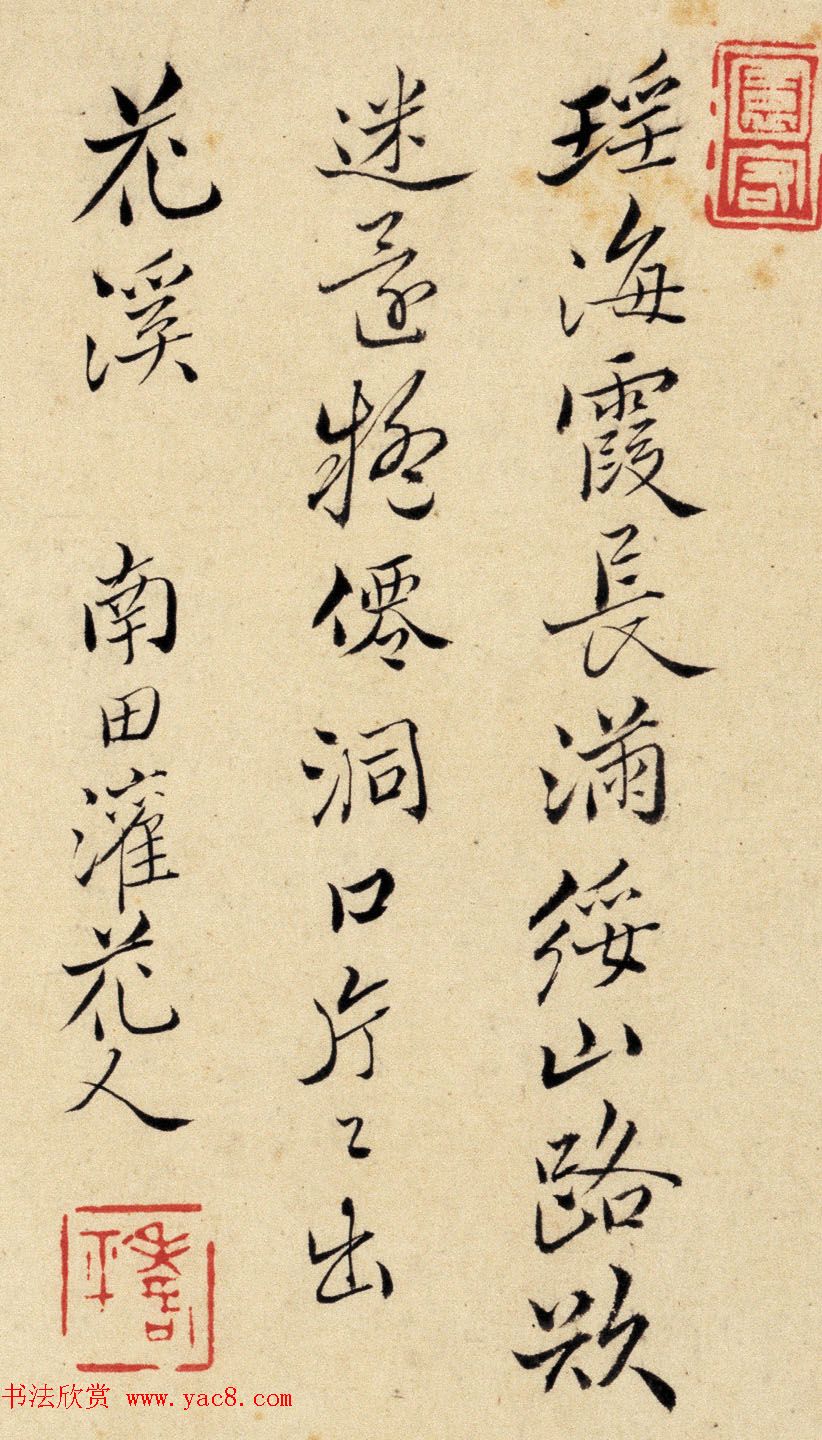 瑶海霞長滿綏山路欲
迷還疑僊洞口片〻出
花溪 南田灌花人
壽平
书法欣赏 www.yac8.com